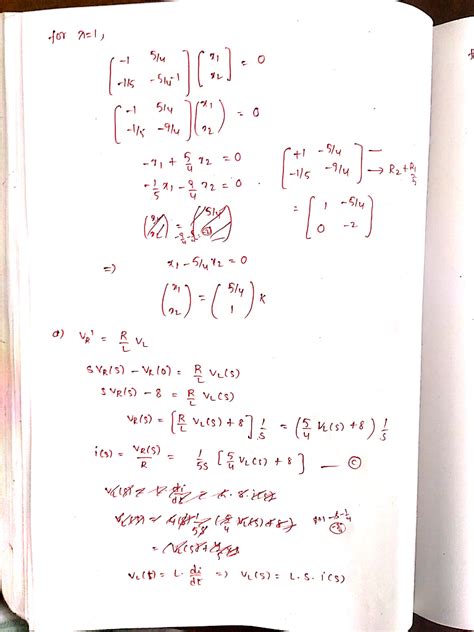 for λ=1,
[-1 5/4; -1/5 -5/4-1] [x1; x2] = 0
[-1 5/4; -1/5 -9/4] (x1; x2) = 0
-x1 + 5/4 x2 = 0
-1/5 x1 - 9/4 x2 = 0
[+1 -5/4; -1/5 -9/4] → R2 + R1/5
= [1 -5/4; 0 -2]
=> x1 - 5/4 x2 = 0
(x1; x2) = (5/4; 1) K
d) VR' = R/L VL
S VR(S) - VR(0) = R/L VL(S)
S VR(S) - 8 = R/L VL(S)
VR(S) = [R/L VL(S) + 8] 1/S = (5/4 VL(S) + 8) 1/S
i(S) = VR(S)/R = 1/5S [5/4 VL(S) + 8] — ⓒ
VL(t) = L. di/dt => VL(S) = L.S.i(S)